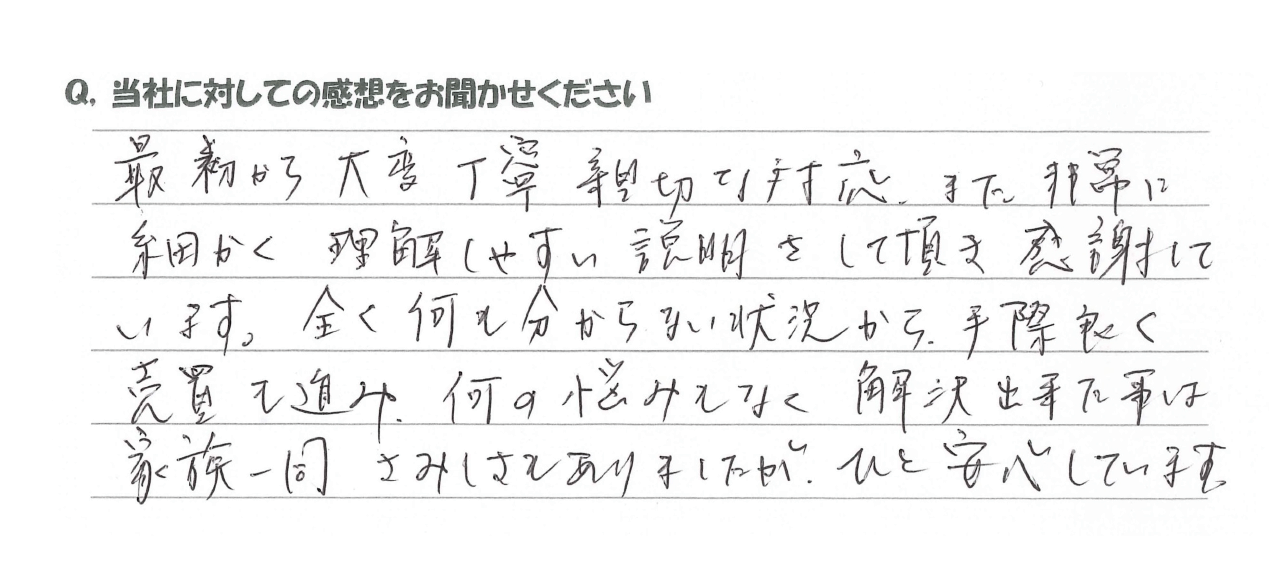 Q. 当社に対しての感想をお聞かせください
最初から大変丁寧親切な対応、また非常に
細かく理解しやすい説明をして頂き感謝して
います。全く何も分からない状況から、手際良く
売買も進み、何の悩みもなく解決出来た事は
家族一同さみしさもありましたが、ひと安心しています